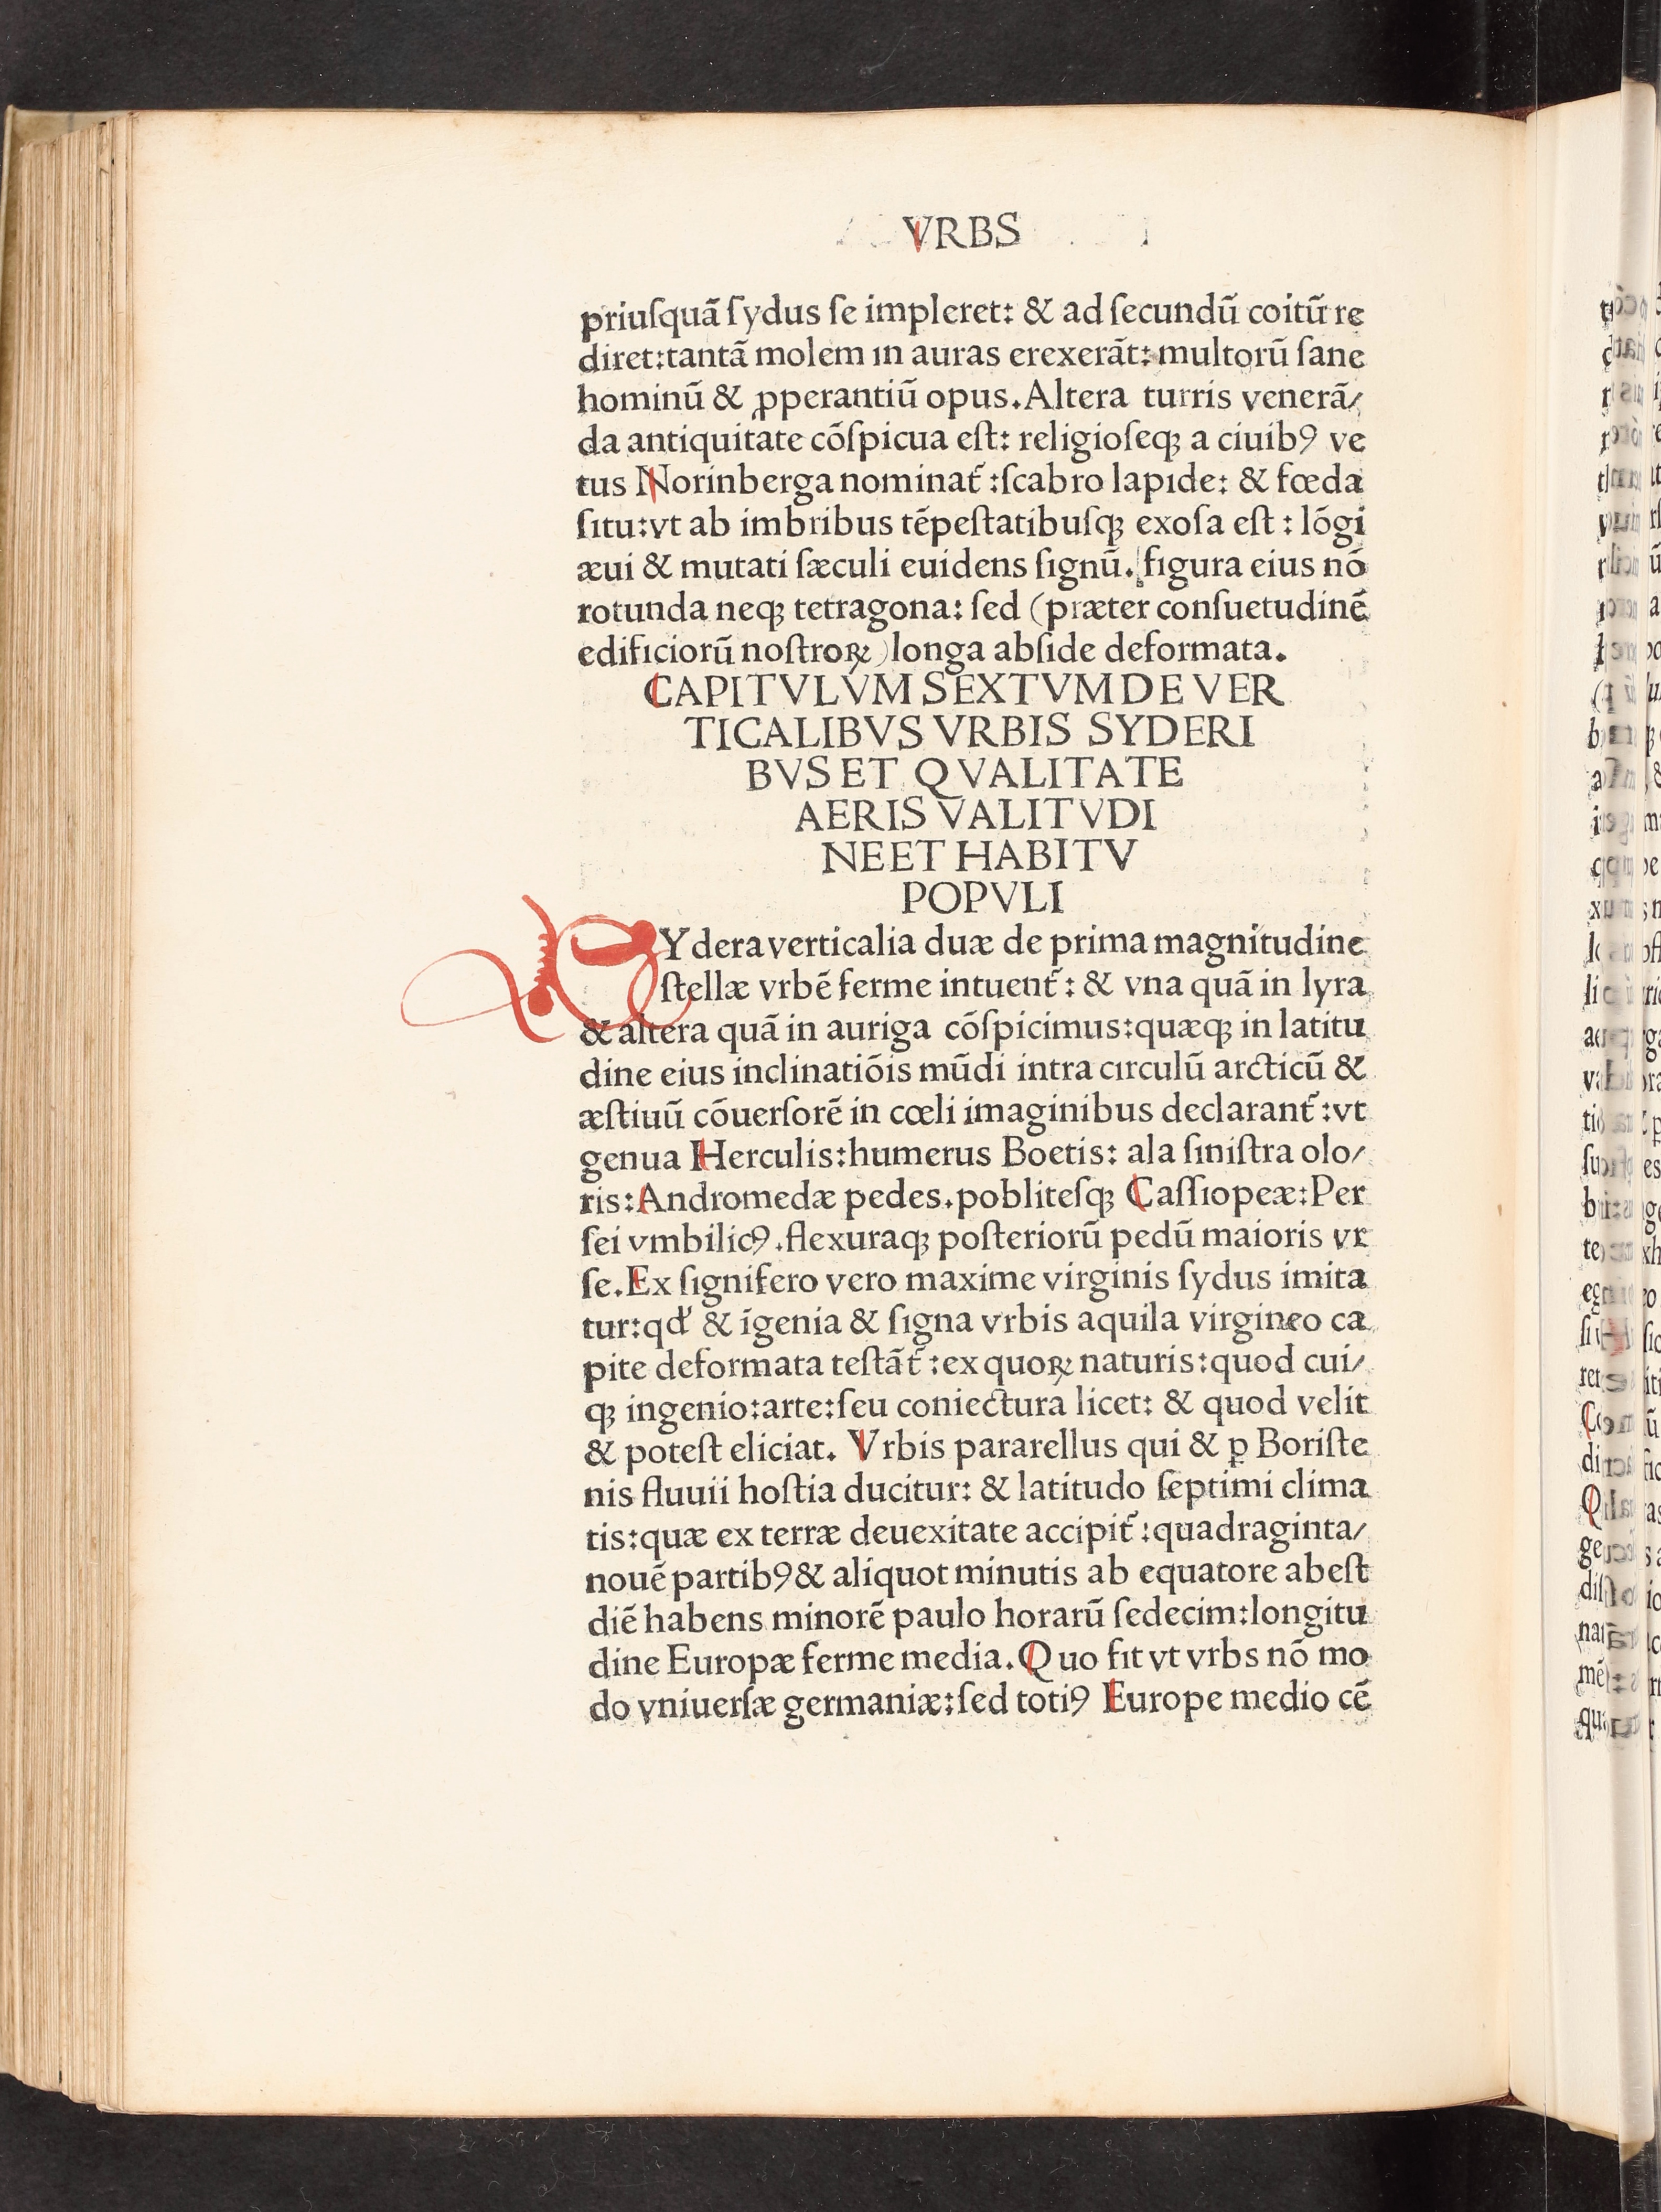 VRBS
priuſquã ſydus ſe impleret: & ad ſecundũ coitũ re
diret:tantã molem in auras erexerãt: multorũ ſane
hominũ & ꝓperantiũ opus. Altera turris venerã/
da antiquitate cõſpicua eſt: religioſeqꝫ a ciuibꝰ ve
tus Norinberga nominat᷑ :ſcabro lapide: & fœda
ſitu:vt ab imbribus tẽpeſtatibuſqꝫ exoſa eſt : lõgi
æui & mutati ſæculi euidens ſignũ. figura eius nõ
rotunda neqꝫ tetragona: ſed (præter conſuetudinẽ
edificiorũ noſtroꝝ) longa abſide deformata.
CAPITVLVM SEXTVM DE VER
TICALIBVS VRBIS SYDERI
BVS ET QVALITATE
AERIS VALITVDI
NE ET HABITV
POPVLI
SYdera verticalia duæ de prima magnitudine
ſtellæ vrbẽ ferme intuent᷑ : & vna quã in lyra
& altera quã in auriga cõſpicimus:quæqꝫ in latitu
dine eius inclinatiõis mũdi intra circulũ arcticũ &
æſtiuũ cõuerſorẽ in cœli imaginibus declarant᷑ :vt
genua Herculis:humerus Boetis: ala ſiniſtra olo/
ris: Andromedæ pedes. pobliteſqꝫ Caſſiopeæ: Per
ſei vmbilicꝰ. flexuraqꝫ poſteriorũ pedũ maioris vr
ſe. Ex ſignifero vero maxime virginis ſydus imita
tur:qđ & ĩgenia & ſigna vrbis aquila virgineo ca
pite deformata teſtãt᷑ : ex quoꝝ naturis:quod cui/
qꝫ ingenio:arte:ſeu coniectura licet: & quod velit
& poteſt eliciat. Vrbis pararellus qui & ꝑ Boriſte
nis fluuii hoſtia ducitur: & latitudo ſeptimi clima
tis:quæ ex terræ deuexitate accipit᷑ :quadraginta/
nouẽ partibꝰ & aliquot minutis ab equatore abeſt
diẽ habens minorẽ paulo horarũ ſedecim:longitu
dine Europæ ferme media. Quo fit vt vrbs nõ mo
do vniuerſæ germaniæ:ſed totiꝰ Europe medio cẽ